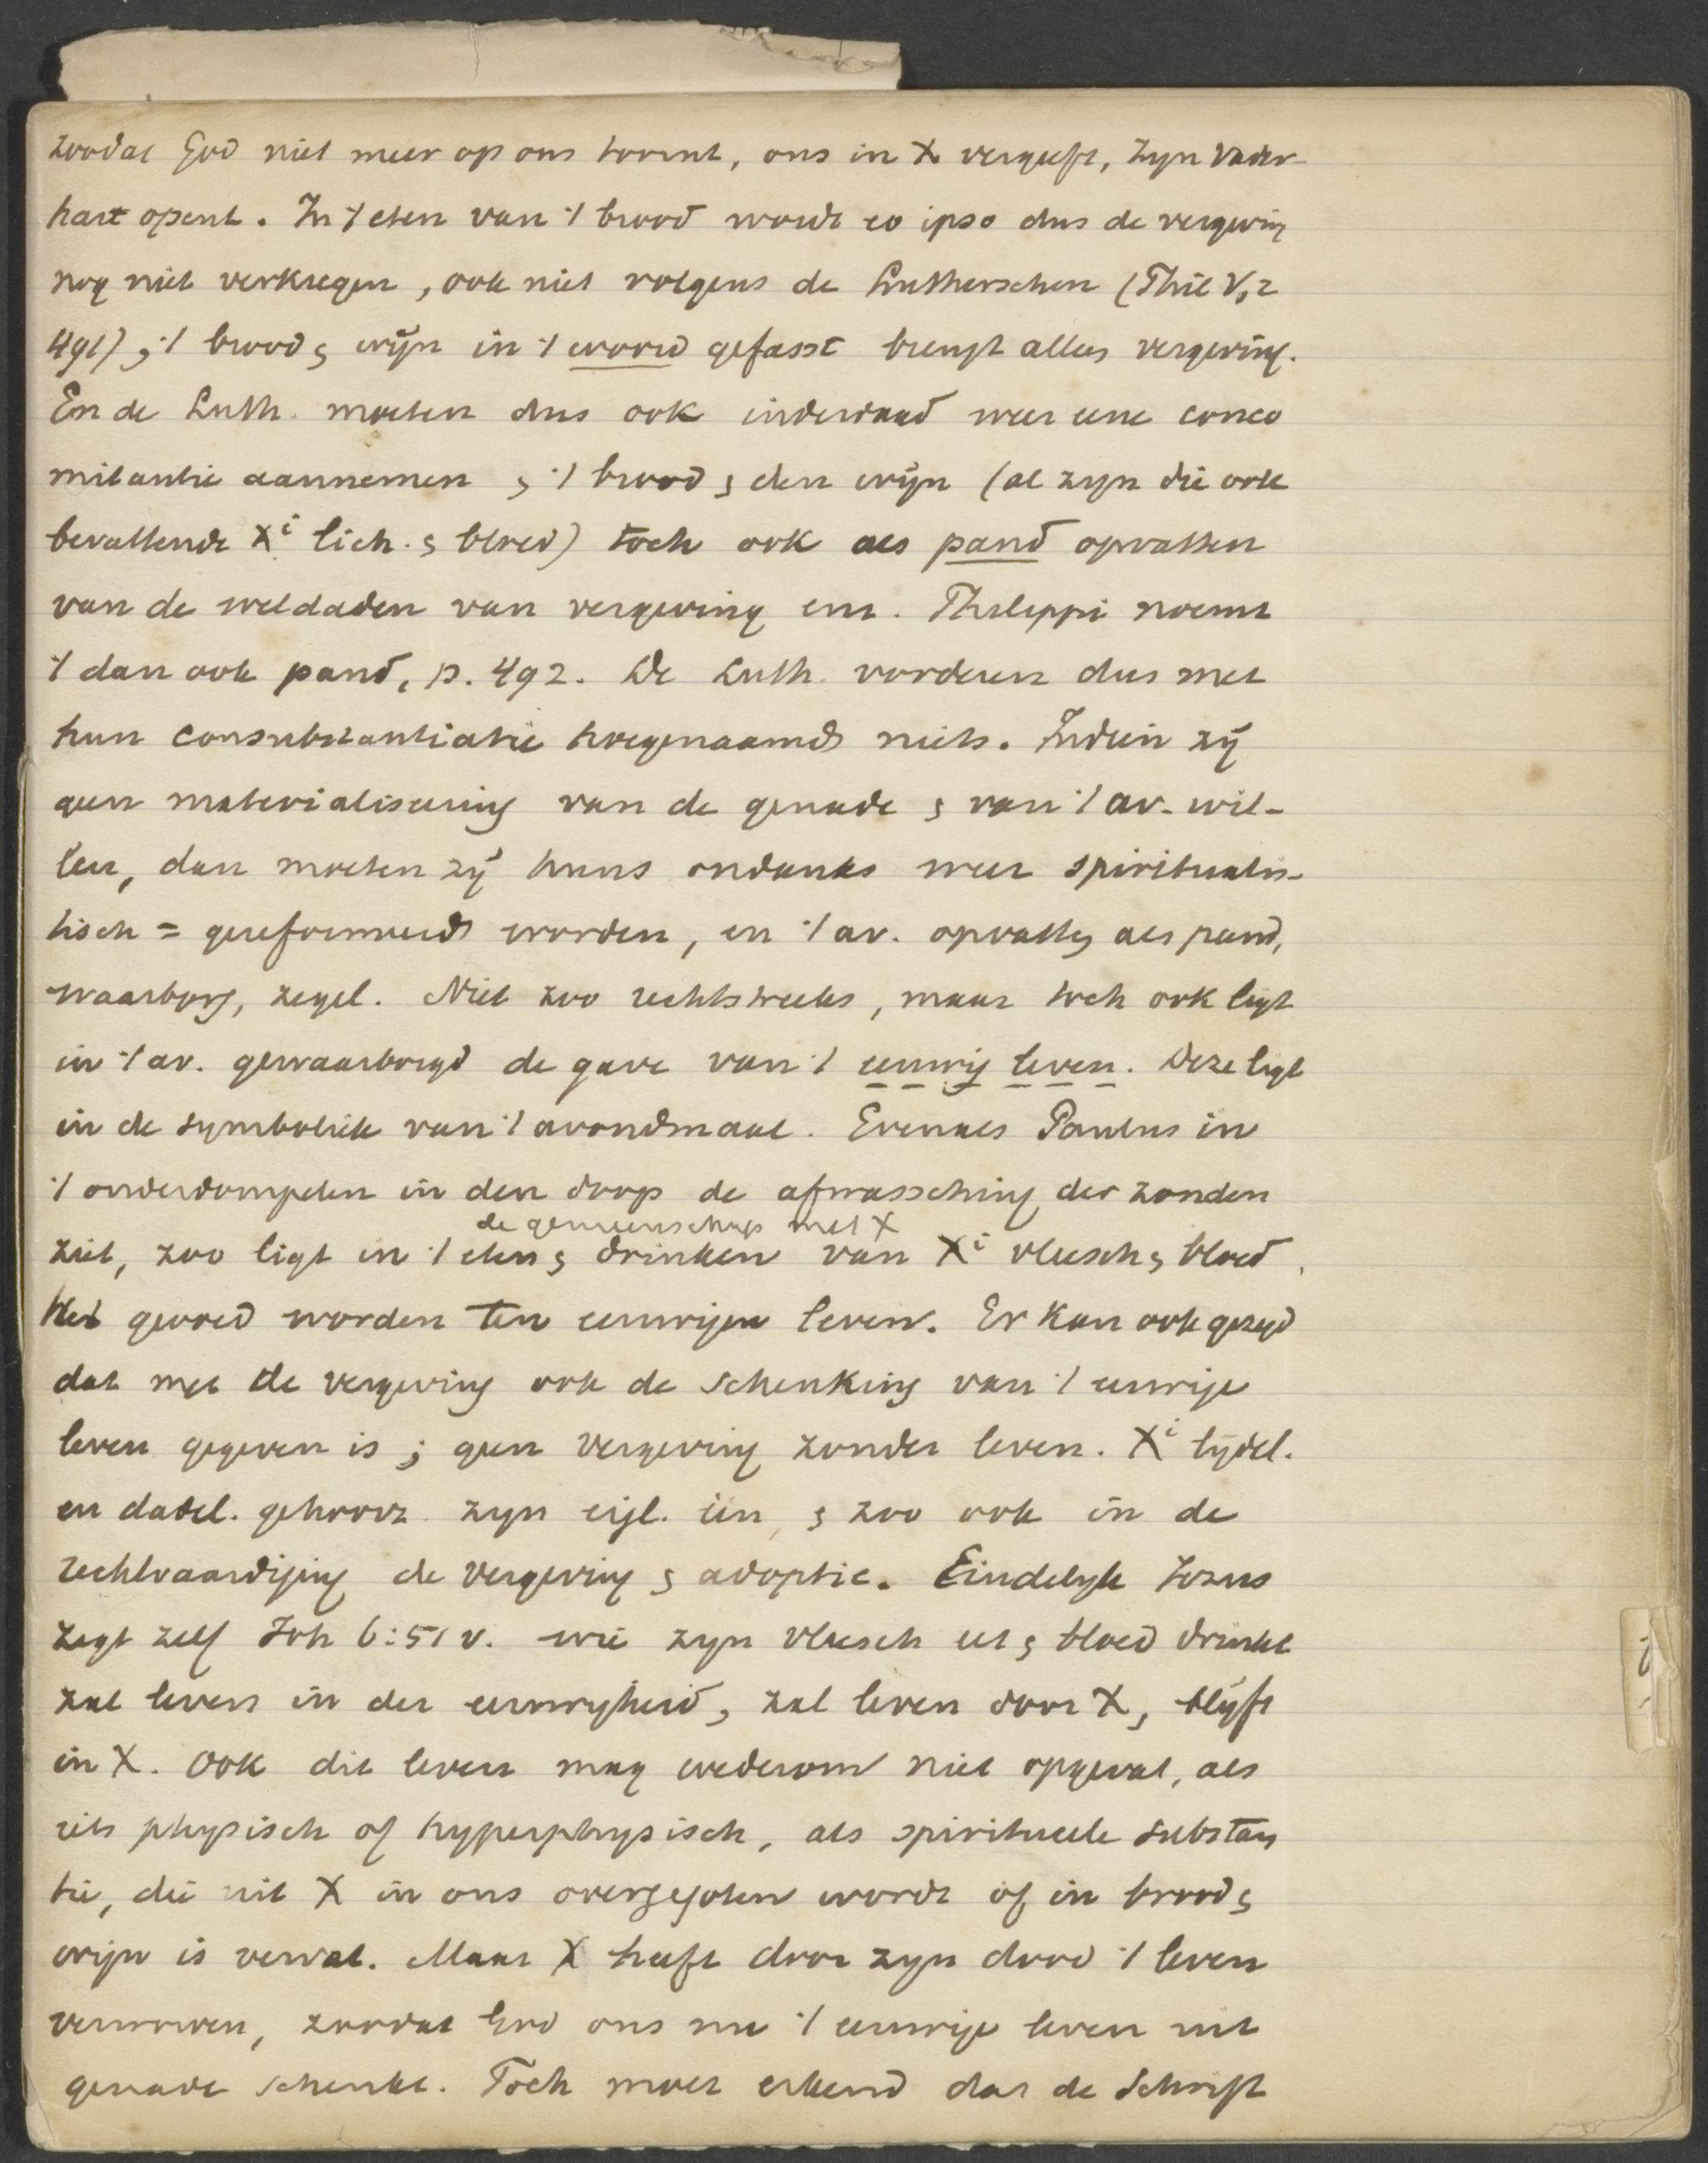 zoodat God niet meer op ons toornt, ons in X vergeeft, zijn Vader-
hart opent. In 't eten van 't brood wordt eo ipso dus de vergeving
nog niet verkregen, ook niet volgens de Lutherschen (Phil V,2
491); 't brood & wijn in 't woord gefasst brengt alles vergeving.
En de Luth. moeten dus ook inderdaad weer eene conco
mitantie aannemen & 't brood & den wijn (al zijn die ook
bevattende Xi lich. & bloed) toch ook als pand opvatten
van de weldaden van vergeving enz. Philippi noemt
't dan ook pand, p. 492. De Luth. vorderen dus met
hun consubstantiatie hoegenaamd niets. Indien zij
geen materialiseering van de genade & van 't av. wil-
len, dan moeten zij huns ondanks weer spiritualis-
tisch = gereformeerd worden, en 't av. opvatten als pand,
waarborg, zegel. Niet zoo rechtstreeks, maar toch ook ligt
in 't av. gewaarborgd de gave van 't eeuwig leven. Deze ligt
in de symboliek van 't avondmaal. Evenals Paulus in
't onderdompelen in den doop de afwassching der zonden
de gemeenschap met X
ziet, zoo ligt in 't eten & drinken van Xi vleesch & bloed,
Het gevoed worden ten eeuwigen leven. Er kan ook gezegd
dat met de vergeving ook de schenking van 't eeuwige
leven gegeven is; geen vergeving zonder leven. Xi lijdel.
en dadel. gehoorz. zijn eigl. één, & zoo ook in de
rechtvaardiging de vergeving & adoptie. Eindelijk Jezus
zegt zelf Joh 6:51 v. wie zijn vleesch eet & bloed drinkt
zal leven in der eeuwigheid, zal leven door X, blijft
in X. Ook dit leven mag wederom niet opgevat, als
iets physisch of hyperphysisch, als spiritueele substan
tie, die uit X in ons overgegoten wordt of in brood &
wijn is vervat. Maar X heeft door zijn dood 't leven
verworven, zoodat God ons nu 't eeuwige leven uit
genade schenkt. Toch moet erkend dat de Schrift